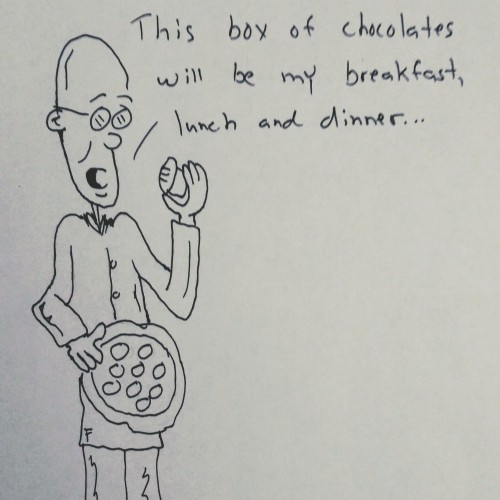 This box of chocolates
will be my breakfast,
lunch and dinner...
F